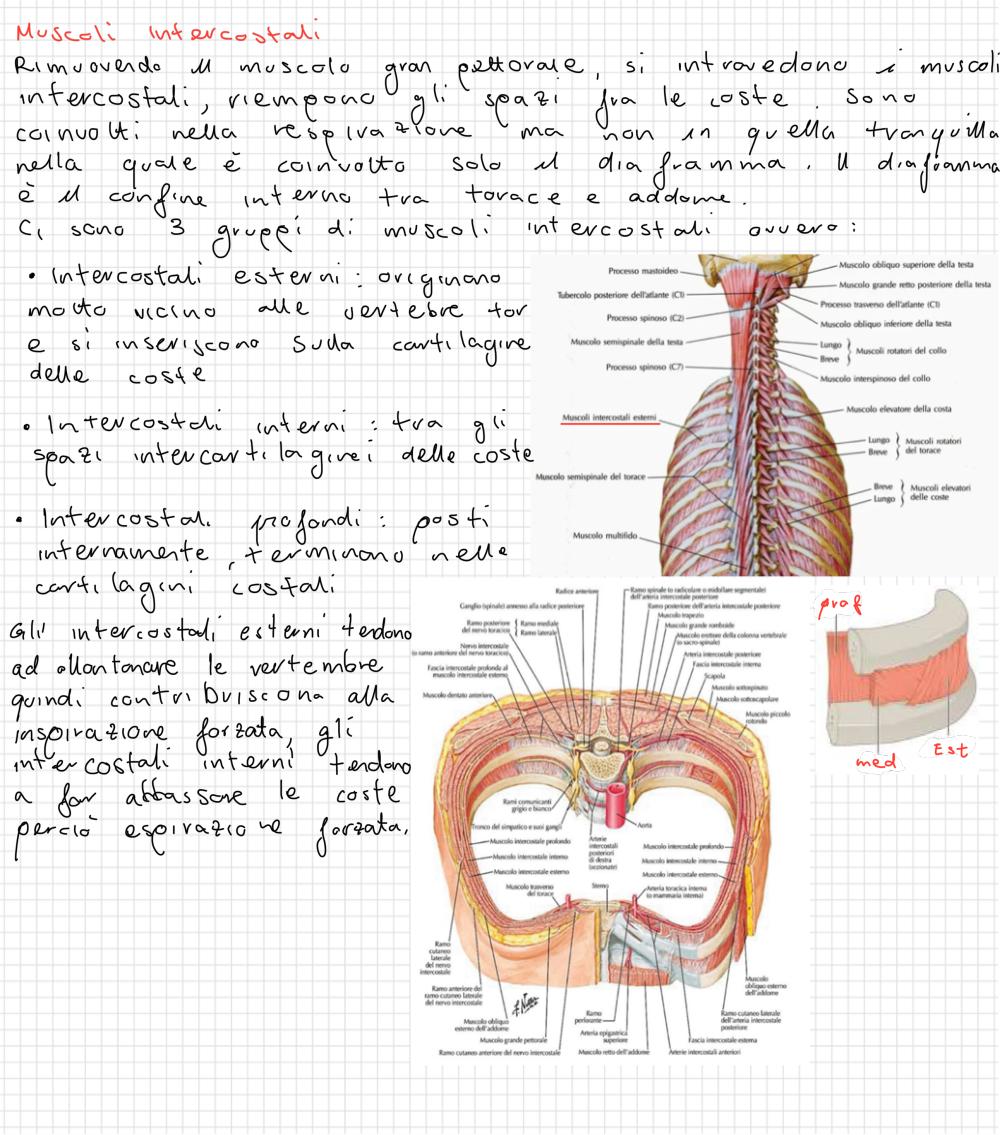 Muscoli intercostali
Rimuovendo il muscolo gran pettorale, si intravedono i muscoli
intercostali, riempono gli spazi fra le coste. Sono
coinvolti nella respirazione ma non in quella tranquilla
nella quale è coinvolto solo il diaframma. Il diaframma
è il confine interno tra torace e addome.
Ci sono 3 gruppi di muscoli intercostali ovvero:
• Intercostali esterni: originano
molto vicino alle vertebre tor
e si inseriscono sulla cartilagine
delle coste
• Intercostali interni: tra gli
spazi intercartilaginei delle coste
• Intercostali profondi: posti
internamente, terminano nelle
cartilagini costali
Gli intercostali esterni tendono
ad allontanare le vertembre
quindi contribuiscono alla
inspirazione forzata, gli
intercostali interni tendono
a far abbassare le coste
perciò espirazione forzata.
Processo mastoideo
Tubercolo posteriore dell'atlante (C1)
Processo spinoso (C2)
Muscolo semispinale della testa
Processo spinoso (C7)
Muscoli intercostali esterni
Muscolo semispinale del torace
Muscolo multifido
Muscolo obliquo superiore della testa
Muscolo grande retto posteriore della testa
Processo trasverso dell'atlante (C1)
Muscolo obliquo inferiore della testa
Lungo
Breve
Muscoli rotatori del collo
Muscolo interspinoso del collo
Muscolo elevatore della costa
Lungo
Breve
Muscoli rotatori
del torace
Breve
Lungo
Muscoli elevatori
delle coste
Radice anteriore
Ganglio (spinale) annesso alla radice posteriore
Ramo posteriore
del nervo toracico
Ramo mediale
Ramo laterale
Nervo intercostale
(o ramo anteriore del nervo toracico)
Fascia intercostale profonda al
muscolo intercostale esterno
Muscolo dentato anteriore
Ramo spinale (o radicolare o midollare segmentale)
dell'arteria intercostale posteriore
Ramo posteriore dell'arteria intercostale posteriore
Muscolo trapezio
Muscolo grande romboide
Muscolo erettore della colonna vertebrale
(o sacro-spinale)
Arteria intercostale posteriore
Fascia intercostale interna
Scapola
Muscolo sottospinato
Muscolo sottoscapolare
Muscolo piccolo
rotondo
Rami comunicanti
grigio e bianco
Tronco del simpatico e suoi gangli
Muscolo intercostale profondo
Muscolo intercostale interno
Muscolo intercostale esterno
Muscolo trasverso
del torace
Aorta
Arterie
intercostali
posteriori
di destra
(sezionate)
Sterno
Muscolo intercostale profondo
Muscolo intercostale interno
Muscolo intercostale esterno
Arteria toracica interna
(o mammaria interna)
Ramo
cutaneo
laterale
del nervo
intercostale
Ramo anteriore del
ramo cutaneo laterale
del nervo intercostale
Muscolo obliquo
esterno dell'addome
Muscolo grande pettorale
Ramo cutaneo anteriore del nervo intercostale
Ramo
perforante
Arteria epigastrica
superiore
Muscolo retto dell'addome
Muscolo
obliquo esterno
dell'addome
Ramo cutaneo laterale
dell'arteria intercostale
posteriore
Fascia intercostale esterna
Arterie intercostali anteriori
prof
med
Est